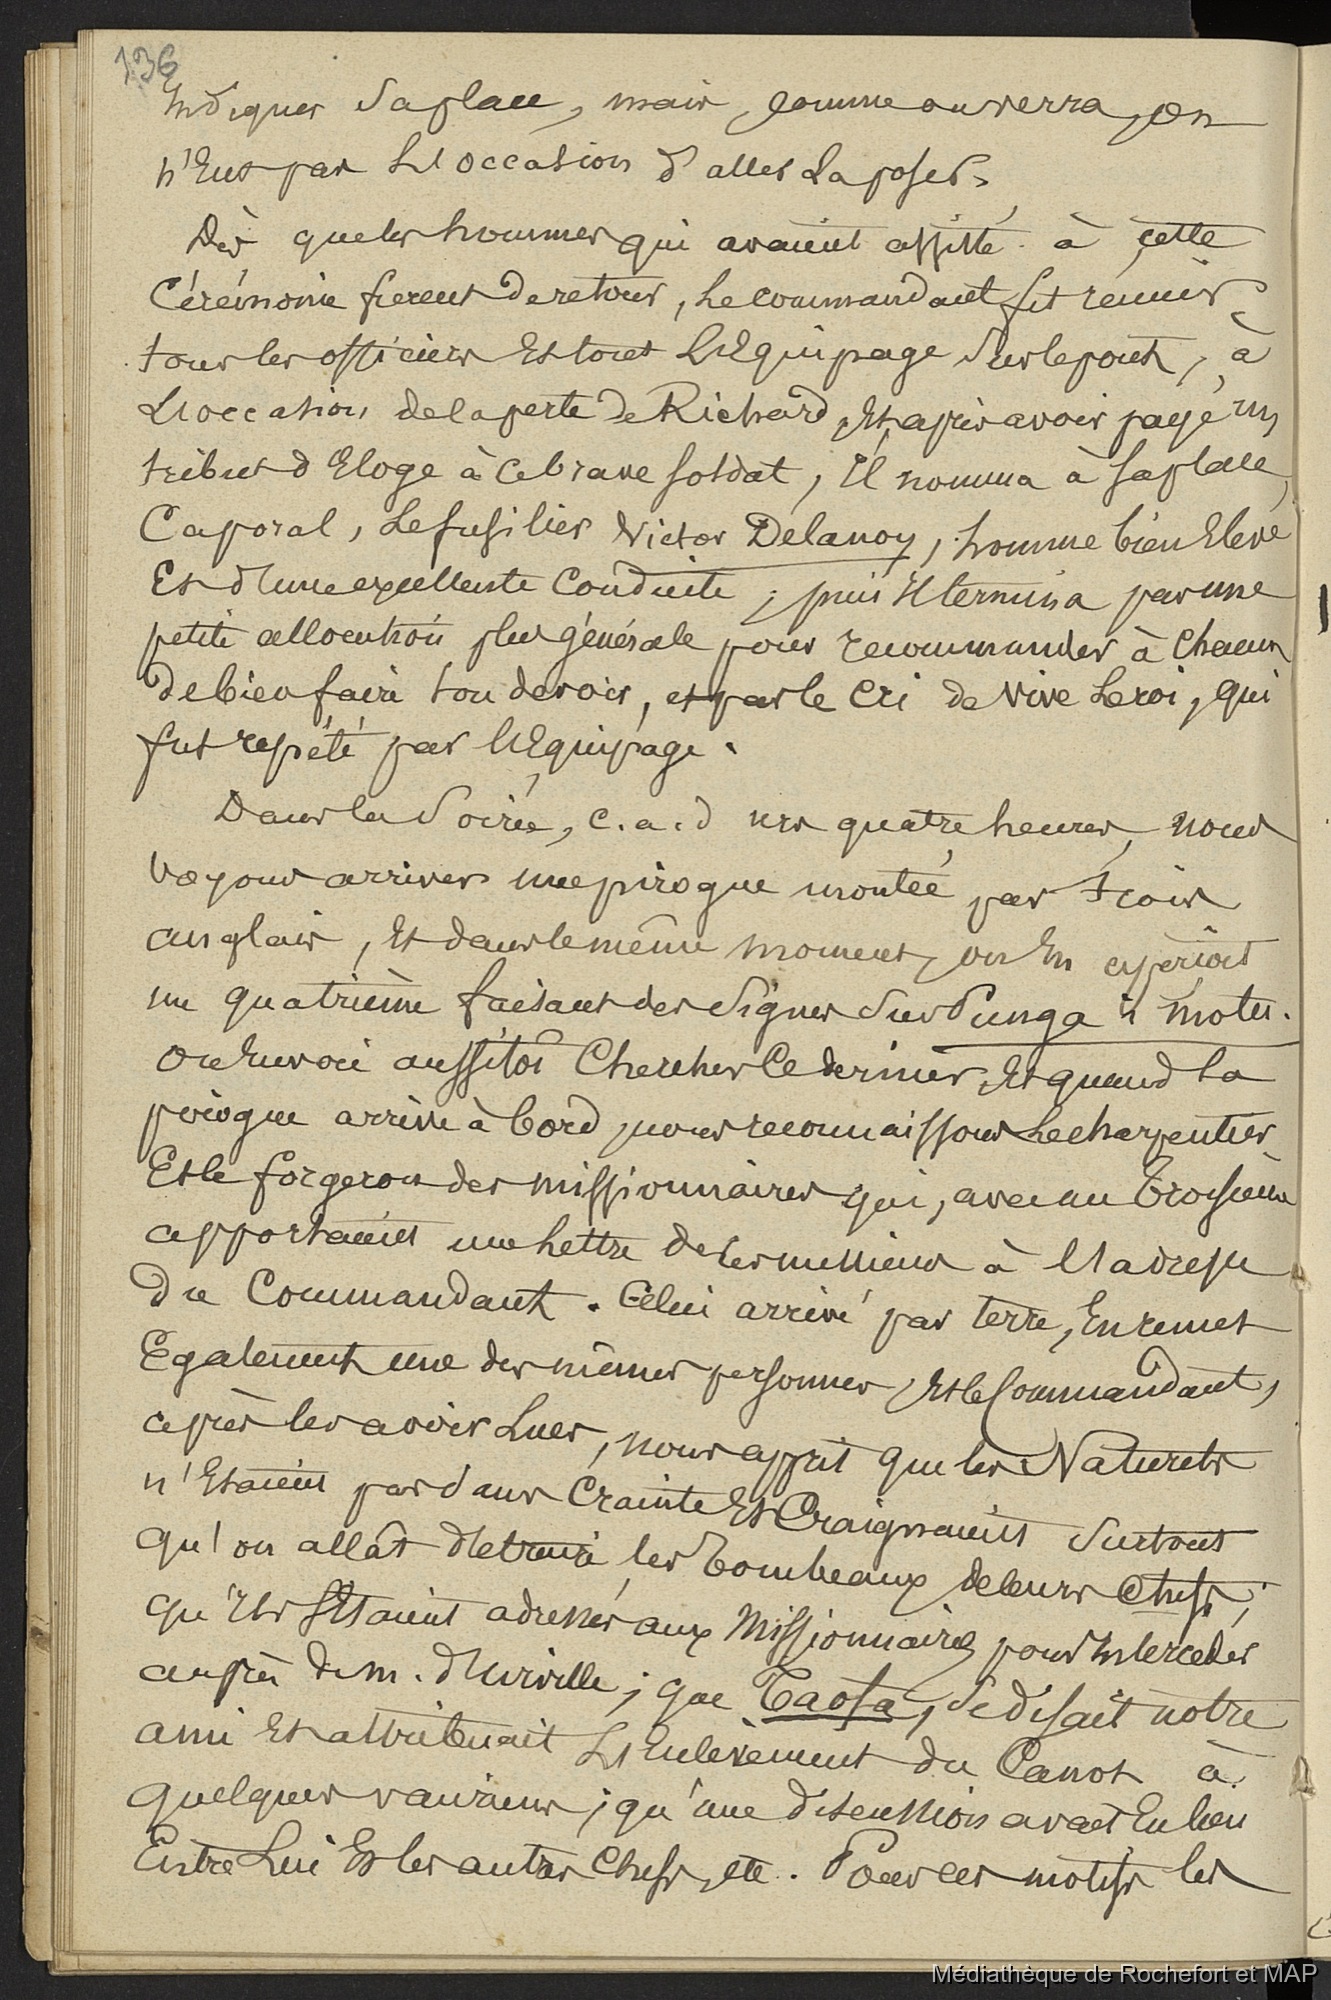 136
Indiquer sa place, mais, comme on verra, on
n'Eut pas L'occasion d'aller La poser.
Dès que les hommes qui avaient assisté à cette
Cérémonie furent de retour, Le commandant fit réunir
tous les officiers Et tout L'Equipage sur le pont, à
L'occasion de la perte de Richard, Et après avoir payé un
tribut d'Eloge à ce brave soldat, Il nomma à sa place,
Caporal, Le fusilier Victor Delanoy, homme bien Elevé
Et d'une excellente Conduite, puis Il termina par une
petite allocution plus générale pour recommander à chacun
de bien faire son devoir, et par le Cri de Vive Le roi, qui
fut répété par L'Equipage.
Dans la Soirée, c. a. d vers quatre heures, nous
voyons arriver une pirogue montée par trois
anglais, Et dans le même moment, on En aperçoit
un quatrième faisant des Signes Sur Punga i motu.
On Envoie aussitôt Chercher Ce dernier, Et quand la
pirogue arrive à bord, nous reconnaissons Le charpentier
Et le forgeron des missionnaires qui, avec un troisième
apportaient une Lettre de ces messieurs à L'adresse
du Commandant. Celui arrivé par terre, En remet
Egalement une des mêmes personnes, Et le Commandant,
après les avoir Lues, nous apprit que les Naturels
n'Etaient pas sans Crainte Et Craignaient Surtout
qu'on allât détruire les tombeaux de leurs Chefs;
qu'Ils s'Etaient adressés aux Missionnaires pour Intercéder
auprès de m. d'Urville; que Taofa, se disait notre
ami Et attribuait L'Enlèvement du Canot à
quelques vauriens; qu'une discussion avait Eu lieu
Entre Lui Et les autres Chefs, etc. Pour ces motifs les
Médiathèque de Rochefort et MAP